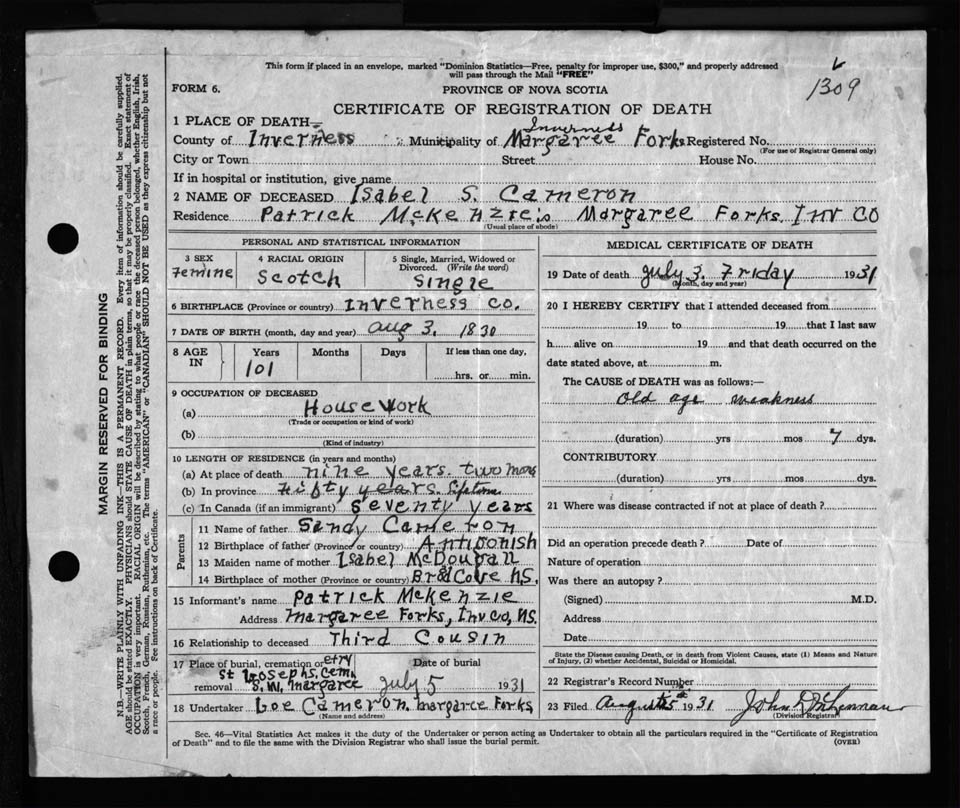 This form if placed in an envelope, marked "Dominion Statistics—Free, penalty for improper use, $300," and properly addressed
will pass through the Mail "FREE"
1309
FORM 6.
PROVINCE OF NOVA SCOTIA
CERTIFICATE OF REGISTRATION OF DEATH
1 PLACE OF DEATH—
Inverness
County of Inverness Municipality of Margaree Forks Registered No.
(For use of Registrar General only)
City or Town Street House No.
If in hospital or institution, give name
2 NAME OF DECEASED Isabel S. Cameron
Residence Patrick McKenzie's Margaree Forks. Inv Co
(Usual place of abode)
PERSONAL AND STATISTICAL INFORMATION
3 SEX 4 RACIAL ORIGIN 5 Single, Married, Widowed or
Divorced. (Write the word)
Femine Scotch Single
6 BIRTHPLACE (Province or country) Inverness Co.
7 DATE OF BIRTH (month, day and year) Aug 3. 1830
8 AGE IN Years Months Days If less than one day,
101 hrs. or min.
9 OCCUPATION OF DECEASED
(a) House Work
(Trade or occupation or kind of work)
(b)
(Kind of industry)
10 LENGTH OF RESIDENCE (in years and months)
(a) At place of death nine years. two mons
(b) In province fifty years. Lifetime
(c) In Canada (if an immigrant) Seventy years
Parents
11 Name of father Sandy Cameron
12 Birthplace of father (Province or country) Antigonish
13 Maiden name of mother Isabel McDougall
14 Birthplace of mother (Province or country) Broad Cove N.S.
15 Informant's name Patrick McKenzie
Address Margaree Forks, Inv Co, N.S.
16 Relationship to deceased Third Cousin
17 Place of burial, cremation or etry Date of burial
St Josephs. Cem
removal S.W. Margaree July 5 1931
18 Undertaker Loe Cameron, Margaree Forks
(Name and address)
MEDICAL CERTIFICATE OF DEATH
19 Date of death July 3. Friday 1931
(Month, day and year)
20 I HEREBY CERTIFY that I attended deceased from
19 to 19 that I last saw
h alive on 19 and that death occurred on the
date stated above, at m.
The CAUSE OF DEATH was as follows:—
Old age weakness
(duration) yrs mos 7 dys.
CONTRIBUTORY
(duration) yrs mos dys.
21 Where was disease contracted if not at place of death?
Did an operation precede death? Date of
Nature of operation
Was there an autopsy?
(Signed) M.D.
Address
Date
State the Disease causing Death, or in death from Violent Causes, state (1) Means and Nature
of Injury, (2) whether Accidental, Suicidal or Homicidal.
22 Registrar's Record Number
23 Filed August 1931 John D
(Division Registrar)
Sec. 46—Vital Statistics Act makes it the duty of the Undertaker or person acting as Undertaker to obtain all the particulars required in the "Certificate of Registration
of Death" and to file the same with the Division Registrar who shall issue the burial permit. (OVER)
MARGIN RESERVED FOR BINDING
N.B.—WRITE PLAINLY WITH UNFADING INK—THIS IS A PERMANENT RECORD. Every item of information should be carefully supplied.
AGE should be stated EXACTLY. PHYSICIANS should STATE CAUSE OF DEATH in plain terms, so that it may be properly classified. Exact statement of
OCCUPATION is very important. RACIAL ORIGIN will be described by stating to what people or race the deceased person belonged, whether English, Irish,
Scotch, French, German, Russian, Ruthenian, etc. The terms "AMERICAN" or "CANADIAN" SHOULD NOT BE USED as they express citizenship but not
a race or people. See instructions on back of Certificate.